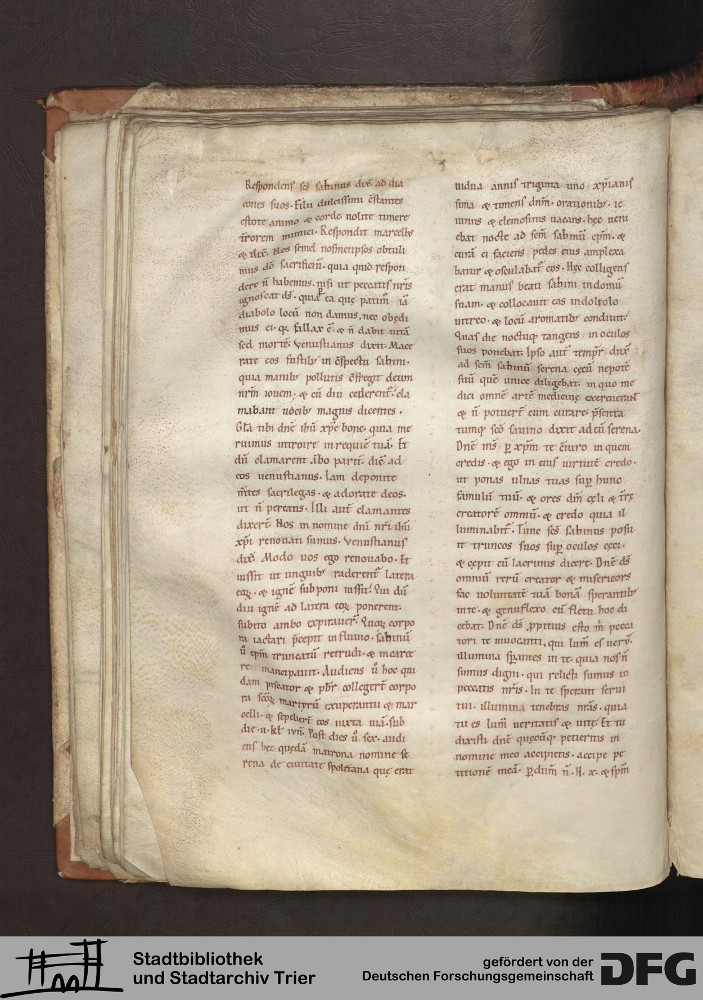 Respondens scs sabinus dix ad dia
cones suos. Filii dulcissimi cstantes
estote animo & corde. nolite timere
rrorem inimici. Respondit marcellus
& dix. Nos semel nosmetipsos obtuli
mus do sacrificiu. quia quid respon
dere n habemus. nisi ut peccatis nris
ignoscat ds. quia ea que patim ia
diabolo locu non damus. nec obedi
mus ei. qa fallax e. & n dabit uita
sed morte. Venustianus dixit. Mace
rate eos fustib in cspectu sabini.
quia manib pollutis cfregit deum
nrm iouem. & cu diu cederent. cla
mabant uocib magnis dicentes.
Gla tibi dne ihu xpe bone. quia me
ruimus introire in requie tua. Et
du clamarent abo parit. dic ad
eos uenustianus. Iam deponite
mtes sacrilegas. & adorate deos.
ut n pereatis. Illi aut clamantes
dixert. Nos in nomine dni nri ihu
xpi renouati sumus. Venustianus
dix. Modo uos ego renouabo. Et
iussit ut unguib raderent latera
eor. & igne subponi iussit. Qui du
diu igne ad latera eor ponerent.
subito ambo expirauer. Quor corpo
ra iactari pcepit in fluuio. sabinu
u epm truncatu retrudi. & in carce
re mancipauit. Audiens u hoc qui
dam piscator & pbr collegert corpo
ra scor martyru exuperantii & mar
celli. & sepeliert eos iuxta uia. sub
die .ii. kl iun. Post dies u .xxx. audi
ens hec queda matrona nomine se
rena de ciuitate spoletana que erat
uidua annis triginta uno xpianis
sima & timens dnm. orationib. ie
iuniis & elemosinis uacans. hec ueni
ebat nocte ad scm sabinu epm. &
cura ei faciens pedes eius amplexa
batur & osculabat eos. Hec colligens
erat manus beati sabini in domu
suam. & collocauit eas in doliolo
uitreo. & locu aromatib condiuit.
Quas die noctuq tangens in oculos
suos ponebat. Ipso aut tempr dux
ad scm sabinu serena cecu nepote
suu que unice diligebat. in quo me
dici omne arte medicine exercuerat
& n potuert eum curare. psenta
tumq sco sauino dixit ad eu serena.
Dne ms p xpm te ciuro in quem
credis. & ego in eius uirtute credo.
ut ponas ulnas tuas sup hunc
famulu tuu. & ores dm celi & tre
creatore omniu. & credo quia il
luminabit. Tunc scs sabinus posu
it truncos suos sup oculos ceci.
& cepit cu lacrimis dicere. Dne ds
omniu reru creator & misericors
fac uoluntate tua bona sperantib
in te. & genuflexo cu fletu hoc di
cebat. Dne ds ppitius esto m pecca
tori te inuocanti. qui lum es ueru.
illumina sperantes in te. quia nos n
sumus digni. qui relicti sumus in
peccatis nris. In te sperant serui
tui. illumina tenebras nras. quia
tu es lum ueritatis & uite. Et tu
dixisti dne quecuq petieritis in
nomine meo accipietis. accipe pe
titione mea. p dnm n. h. x. & spm
Stadtbibliothek
und Stadtarchiv Trier
gefördert von der
Deutschen Forschungsgemeinschaft
DFG